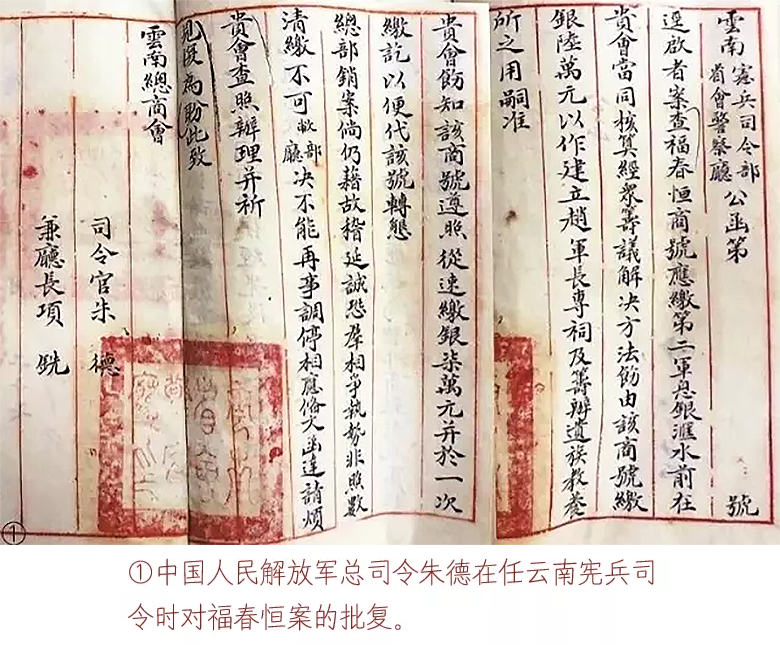 雲南憲兵司令部
省會警察廳
公函第 號
逕啟者案查福春恒商號應繳第二軍息銀滙水前在
貴會當同核算經眾籌議解決方法飭由該商號繳
銀陸萬元以作建立趙軍長專祠及籌辦遺族教養
所之用嗣准
貴會飭知該商號遵照從速繳銀柒萬元并於一次
繳訖以便代該號轉懇
總部銷案倘仍藉故稽延誠恐羣相爭執勢非照數
清繳不可敝部廳決不能再事調停相應備文函達請煩
貴會查照辦理并祈
見復為盼此致
雲南總商會
司令官朱 德
兼廳長項 銑
①
①中国人民解放军总司令朱德在任云南宪兵司
令时对福春恒案的批复。